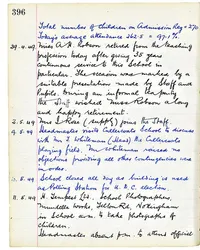 396
Total number of children on Admission Reg = 270
Today's average attendance 262.5 = 97.1%.
29.4.49 Miss A. H. Robson retired from the teaching
profession today after giving 35 years
continuous service to this School in
particular. The occasion was marked by a
suitable presentation made by Staff and
Pupils. During an informal tea party
the Staff wished Miss Robson a long
and happy retirement.
2.5.49 Mrs S. Rose (supply) joins the Staff.
Headmaster visits Callercoats School to discuss
with Mr. Whiteman (Head) the Callercoats
playing field. Mr. Whiteman raises no
objections providing all other contingencies are
in order.
School closed all day as building is used
as Polling Station for a R.C. election.
School Photographers,
in School a.m. to take photographs of
children.
Headmaster absent p.m. to attend official